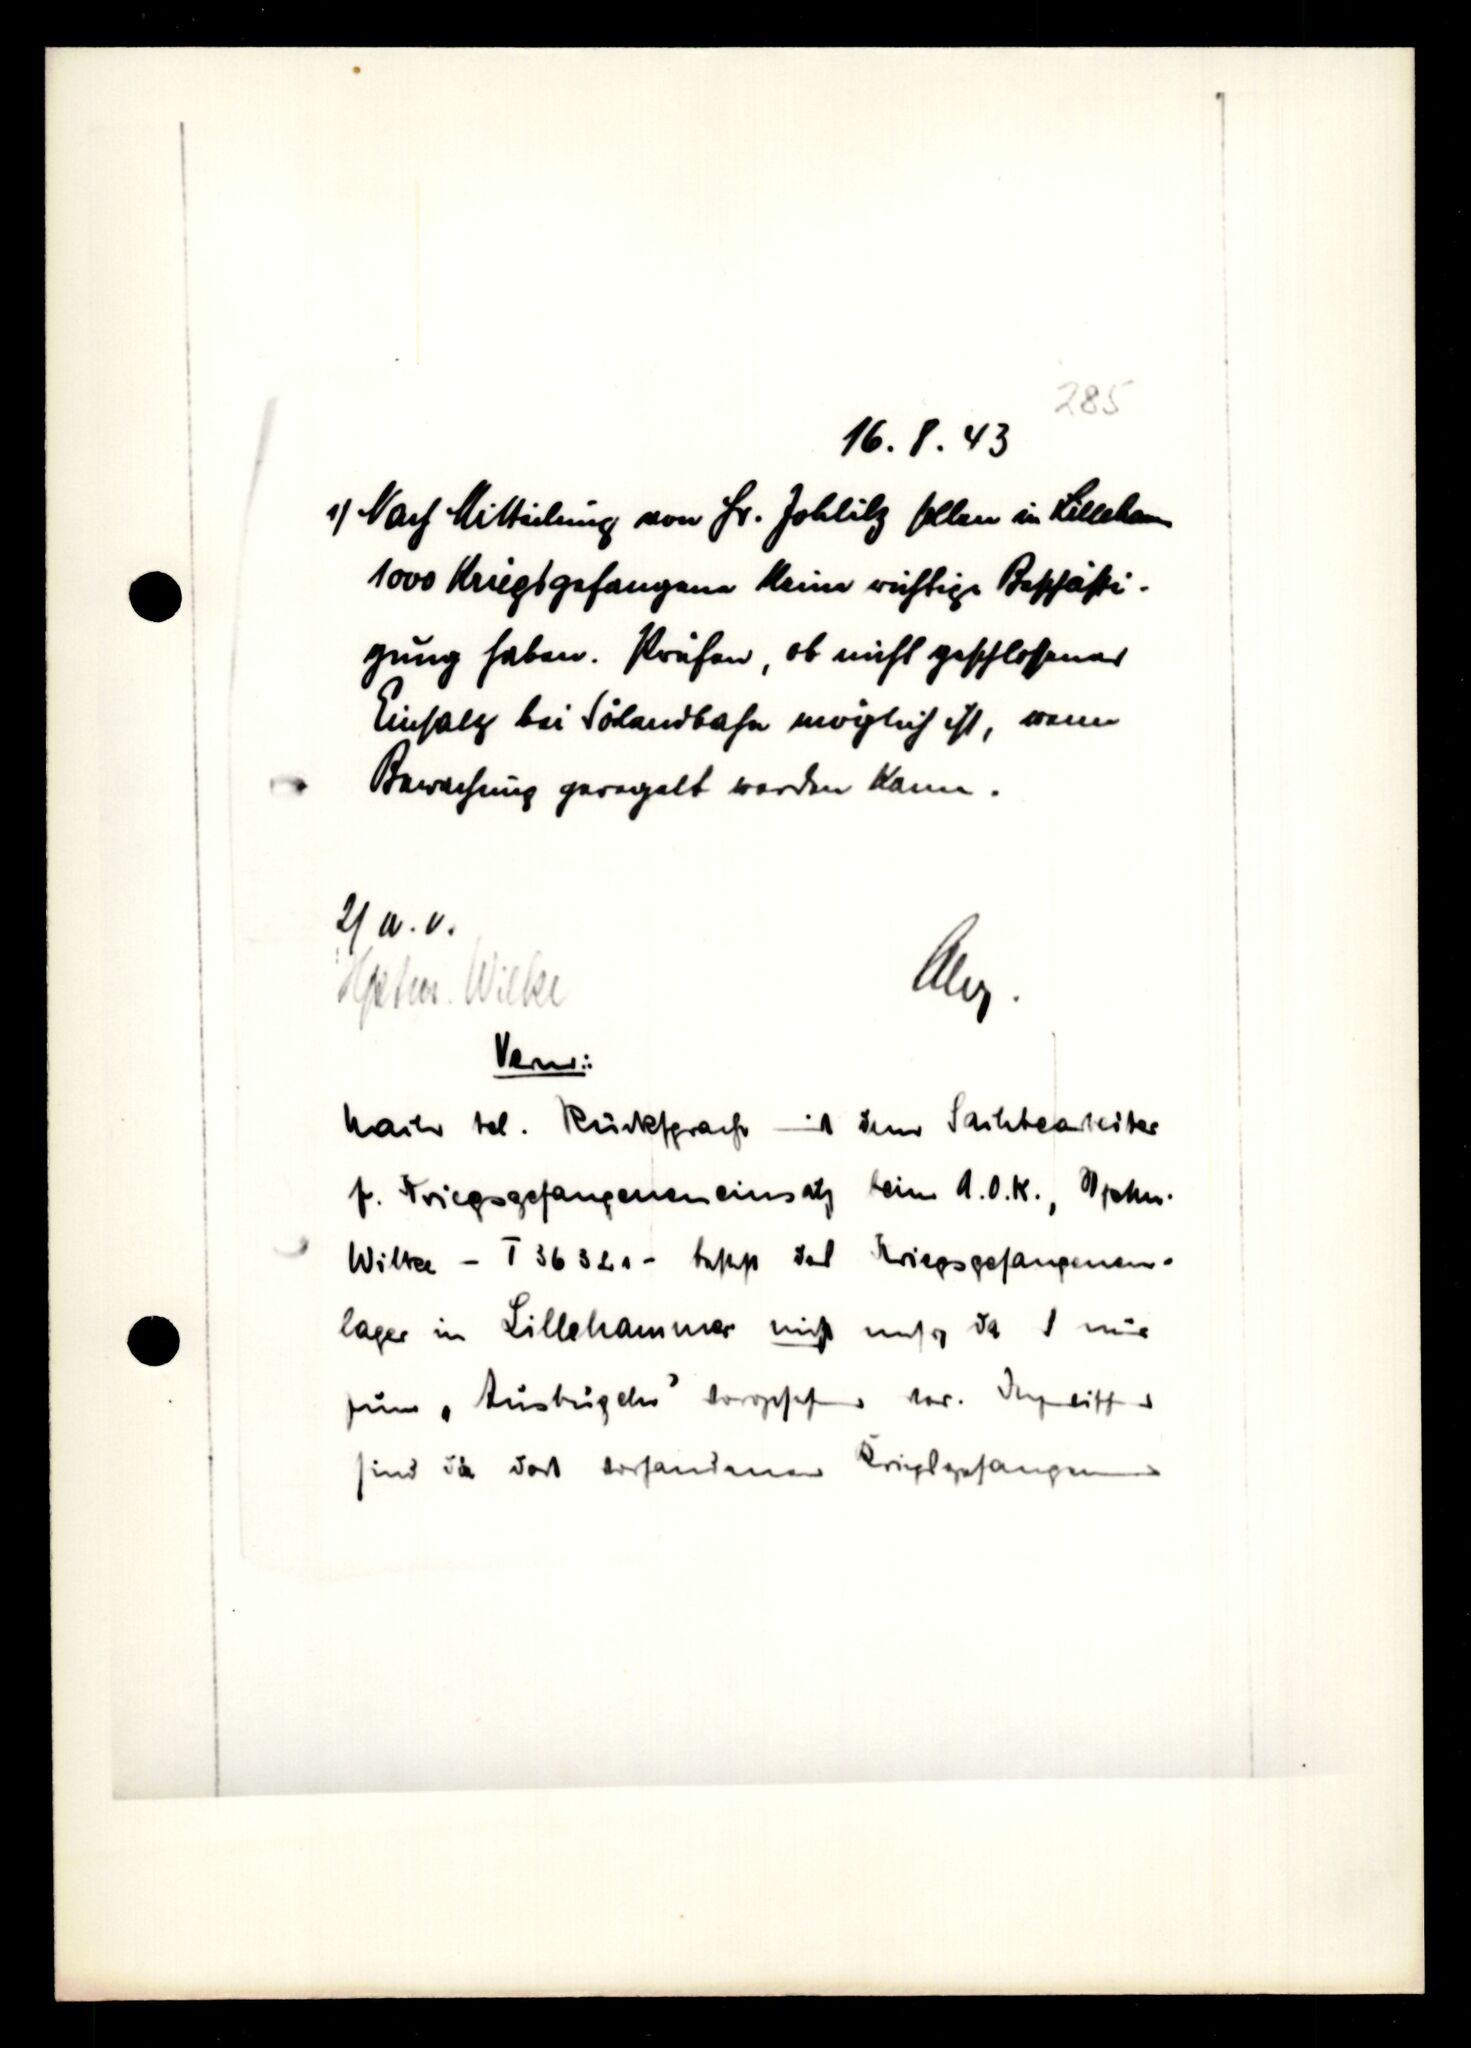 285
16. 8. 43
1) Nach Mitteilung von Hr. Johlitz sollen in Lilleham
1000 Kriegsgefangene keine wichtige Beschäfti-
gung haben. Prüfen, ob nicht geschlossener
Einsatz bei Sörlandbahn möglich ist, wenn
Bewachung geregelt werden kann.
2) w. v.
Hptm. Wilke
Verm.:
Nach tel. Rücksprache mit dem Sachbearbeiter
f. Kriegsgefangeneneinsatz beim A.O.K., Hptm.
Wilke - T 36321 - besteht das Kriegsgefangenen-
lager in Lillehammer nicht mehr, da nur
zum „Ausbügeln" vorgesehen war.
sind die dort vorhandenen Kriegsgefangenen